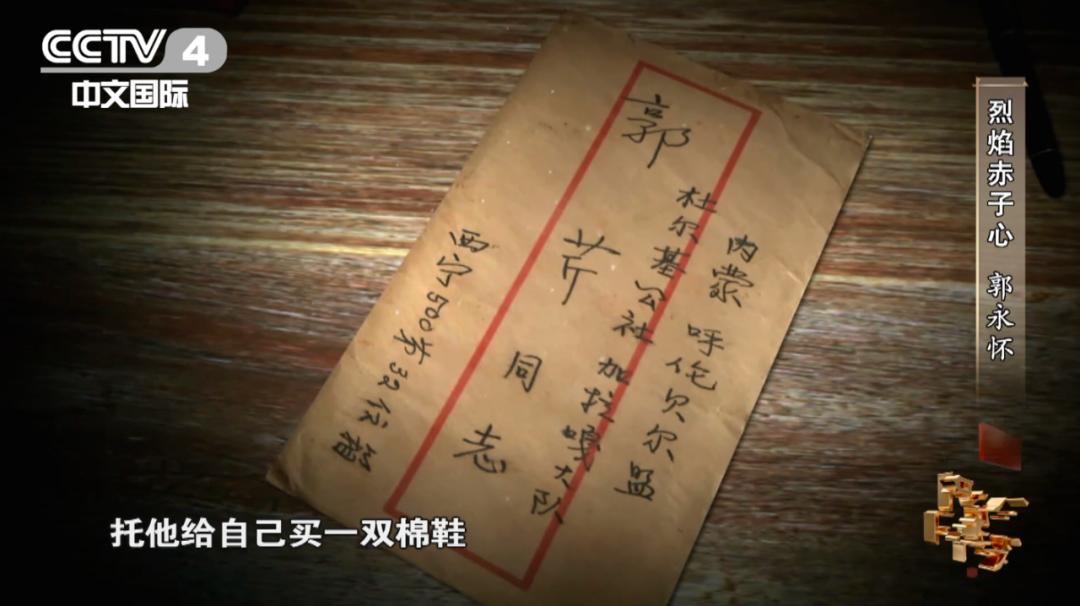 CCTV 4
中文国际
烈焰赤子心 郭永怀
内蒙 呼伦贝尔盟
杜尔基公社 加拉嘎大队
郭芹同志
西宁500号32信箱
托他给自己买一双棉鞋